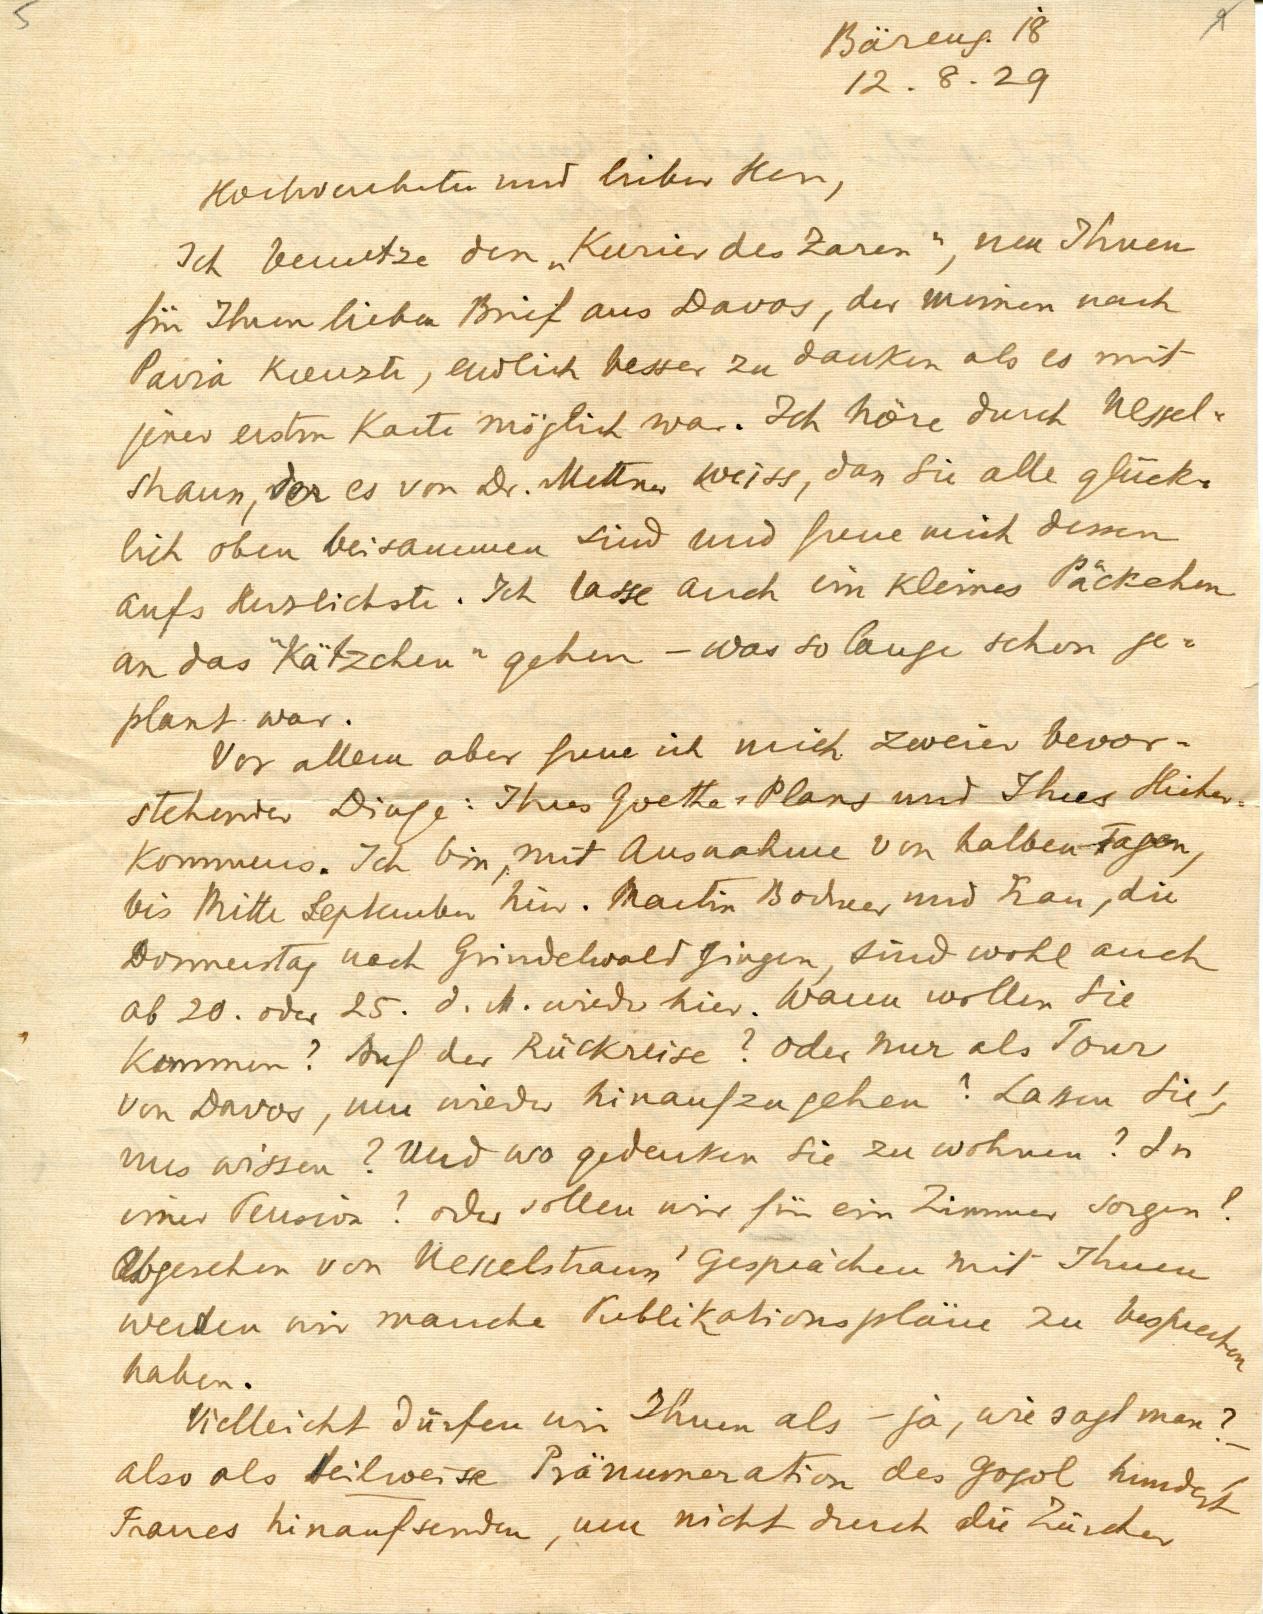 5
Bäreng. 18
12. 8. 29
Hochverehrter und lieber Herr,
Ich benutze den „Kurier des Zaren“, um Ihnen
für Ihren lieben Brief aus Davos, der meinen nach
Pavia kreuzte, endlich besser zu danken als es mit
jener ersten Karte möglich war. Ich höre durch Nessel-
straun, der es von Dr. Mettner weiss, dass Sie alle glück-
lich oben beisammen sind und freue mich dessen
aufs Herzlichste. Ich lasse auch ein kleines Päckchen
an das "Kätzchen" gehen – was so lange schon ge-
plant war.
Vor allem aber freue ich mich zweier bevor-
stehender Dinge: Ihres Goethe-Plans und Ihres Hieher-
kommens. Ich bin, mit Ausnahme von halben Tagen,
bis Mitte September hier. Martin Bodmer und Frau, die
Donnerstag nach Grindelwald gingen, sind wohl auch
ab 20. oder 25. d. M. wieder hier. Wann wollen Sie
kommen? Auf der Rückreise? Oder nur als Tour
von Davos, um wieder hinaufzugehen? Lassen Sie's
uns wissen? Und wo gedenken Sie zu wohnen? In
einer Pension? oder sollen wir für ein Zimmer sorgen?
Abgesehen von Nesselstrauns' Gesprächen mit Ihnen
werden wir manche Publikationspläne zu besprechen
haben.
Vielleicht dürfen wir Ihnen als – ja, wie sagt man? –
also als teilweise Pränumeration des Gogol hundert
Francs hinaufsenden, um nicht durch die Zürcher